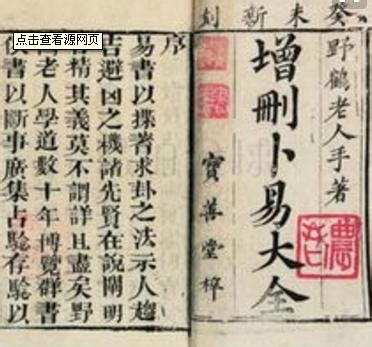 点击查看源网页
癸未新刻
野鶴老人手著
增刪卜易大全
寶善堂梓
序
易書以揲蓍求卦之法示人趨
吉避凶之機諸先賢在說闡明
者精其義莫不謂詳且盡矣野
老人學道數十年博覽群書
書以斷事廣集占驗存驗以